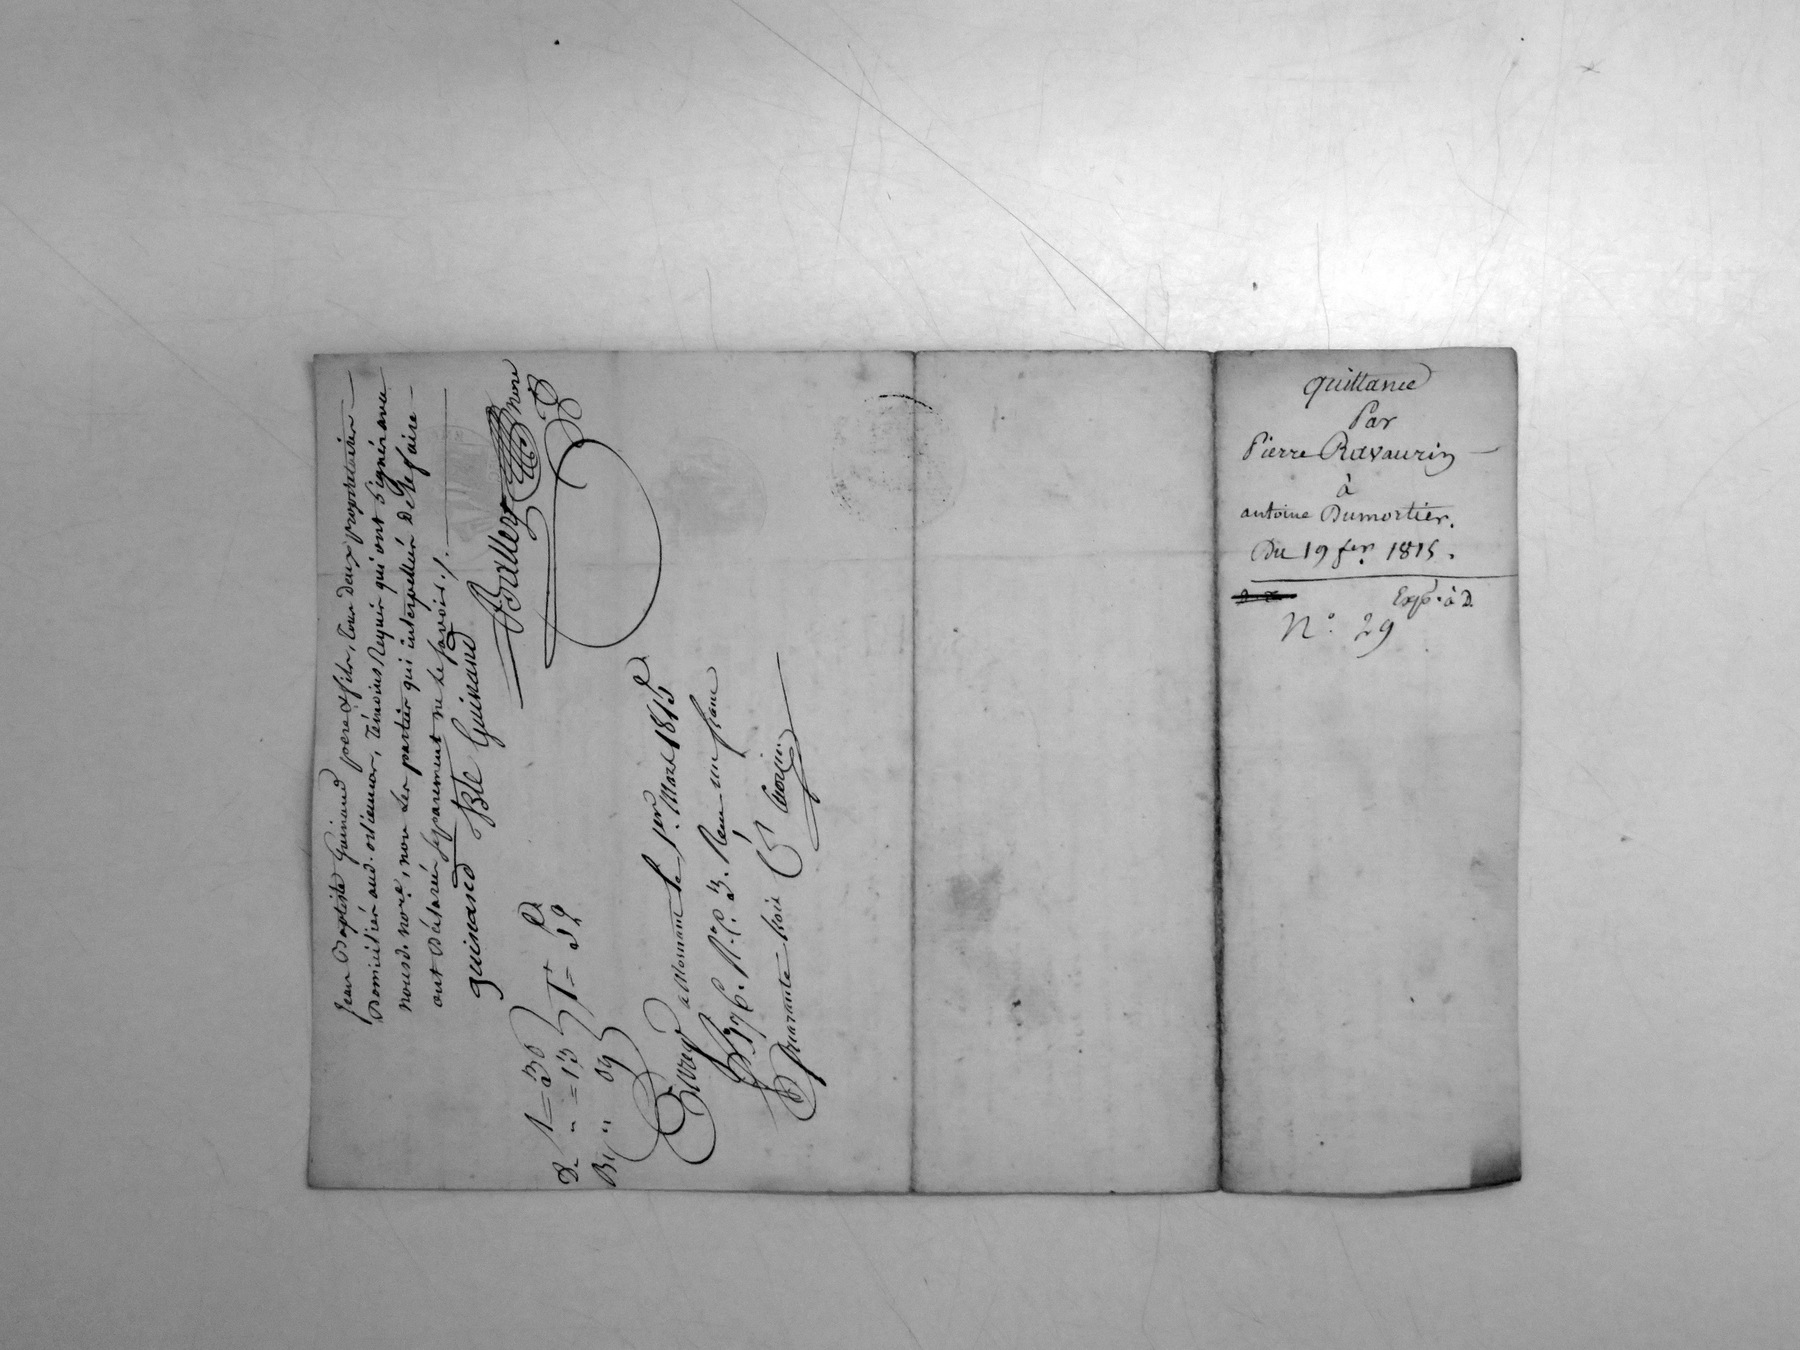 Jean Baptiste Guinand père & fils, tous deux propriétaires
Domiciliés aud. ordiennas, Témoins Requis qui ont Signé avec
nousd. nore., non les parties qui interpellées De le faire
ont Déclaré séparement ne le savoir ./.
guinand Bte Guinand Ballery nore
D. 1 = 30
" = 13
" 09
T = 52
Enregé a Mornant le 1er. Mars 1815
f° 176. R° C. 3. Reçu un franc
Quarante trois Ces
quittance
Par
Pierre Ravaurin
à
antoine Dumortier.
Du 19 fer. 1815.
Exp. à D.
N°. 29